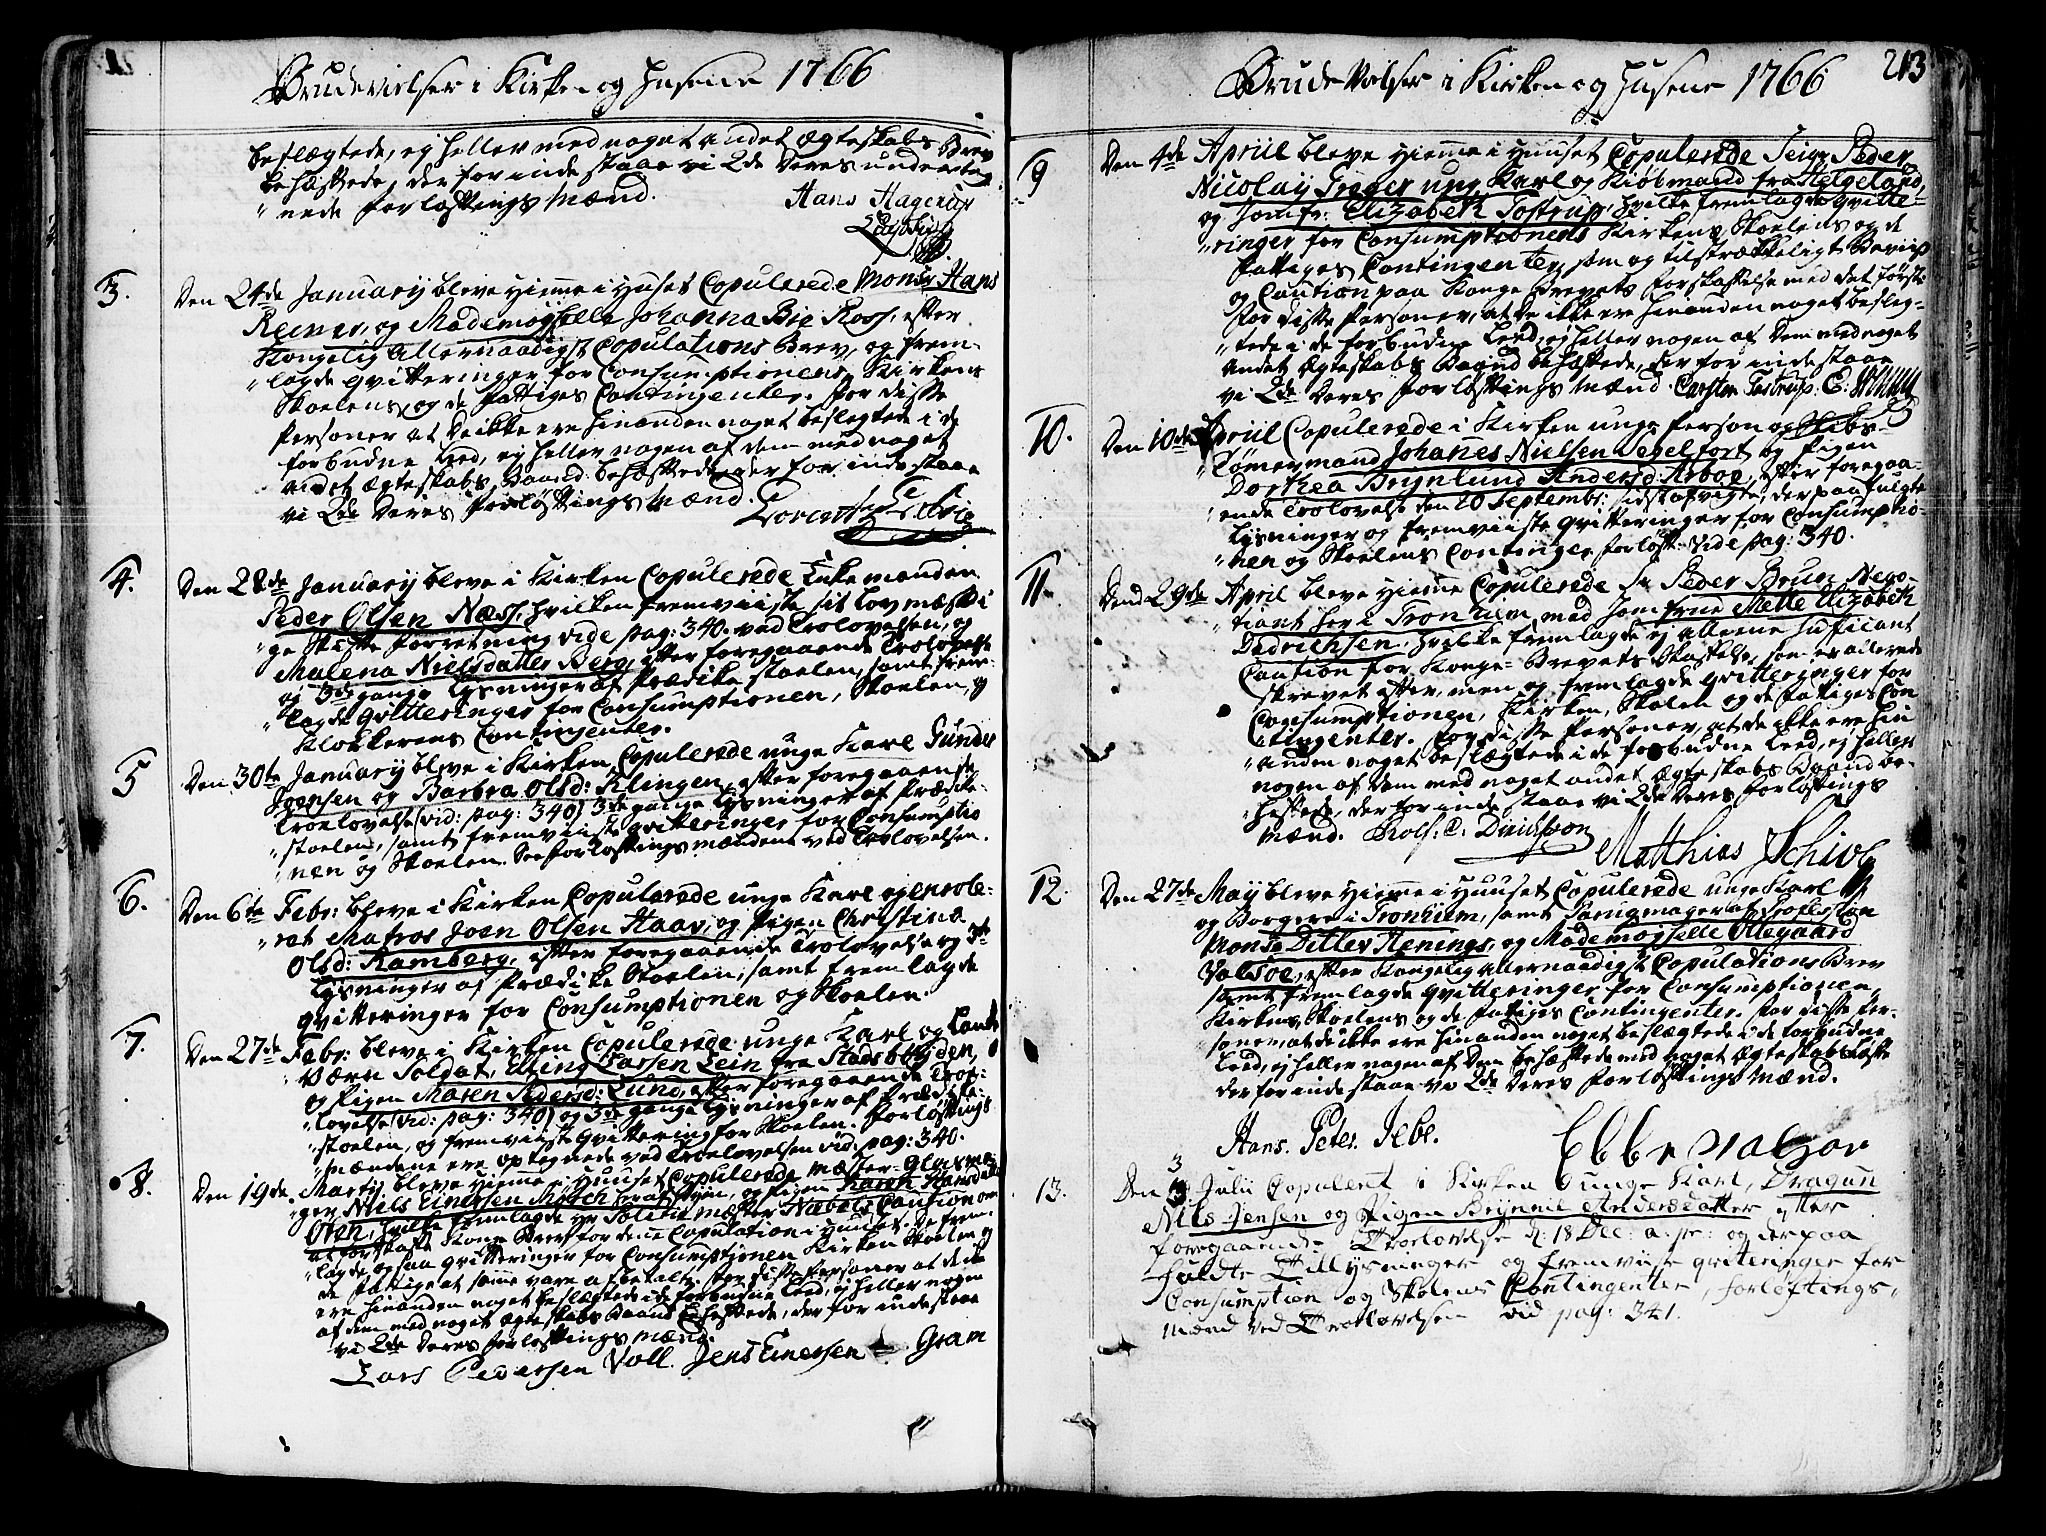 Brudevielser i Kirken og Husene 1766
beslægtede, ej heller med noget andet Ægteskabs Brev
behæftede, der for inde staae vi 2de Deres underteg
nede Forløftings Mænd.
Hans Hagerup
3. Den 24de January bleve hiemme i Huset Copulerede Monsr Hans
Reimer, og Mademoyselle Johanna Bie Koss, efter
Kongelig Allernaadigst Copulations Brev, og frem-
lagde qvitteringer for Consumptionens, Kirkens
Skoelens, og de Fattiges Contingenter. For disse
Personer at De ikke ere hinanden noget beslegtede i de
forbudne Leed, ej heller nogen af dem med noget
andet Ægteskabs Baand behæftede, der for inde staae
vi 2de Deres Forløftings Mænd.
4. Den 28de January bleve i Kirken Copulerede Enkemanden
Peder Olsen Næss, hvilken fremviiste sit lovmæssi
ge Skifte Forretning vide pag: 340. ved Trolovelsen, og
Malena Nielsdatter Berg, efter foregaaende Trolovelse
og 3de gange Lysninger af Prædike stoelen, samt frem-
lagde qvitteringer for Consumptionen, Skoelen, og
Klokkerens Contingenter.
5 Den 30te January bleve i Kirken Copulerede unge Karl Gunder
Joensen og Barbra Olsd: Klingen, efter foregaaende
Troelovelse (vid: pag: 340) 3de gange Lysninger af Prædike-
stoelen, samt fremviiste qvitteringer for Consumptio
nen og Skoelen. See Forløftings mændene ved Trolovelsen.
6. Den 6te Febr: bleve i Kirken Copulerede unge Karl og enrole-
ret Matros Joen Olsen Haav, og Pigen Christina
Olsd: Ramberg, efter foregaaende Trolovelse og 3de
Lysninger af Prædike Stoelen, samt fremlagde
qvitteringer for Consumptionen og Skoelen.
7. Den 27de Febr: bleve i Kirken Copulerede unge Karl og Land
Værn Soldat, Eling Larsen Lein fra Stadsbøyden,
og Pigen Maren Pedersd: Lund, efter foregaaende Troe-
lovelse (vid: pag: 340) og 3de gange Lysninger af Prædike-
stoelen, og fremviiste qvittering for Skoelen. Forløftings
mændene ere optegnede ved Troelovelsen vid: pag: 340.
8. Den 19de Martij bleve hiemme i Huuset Copulerede Mæster Glasma
ger Niels Einersen Møsch, og Pigen Karen Hansdatter
Oven, hvilke fremlagde Hr Politie mæster Nabels Caution om
at forskaffe Konge Brev for denne Copulation i Huuset. De frem-
lagde ogsaa qvitteringer for Consumptionen Kirken Skoelen og
de Fattige at samme vare afbetalt. For disse Personer at de ikke
ere hinanden noget beslægtede i de forbudne Leed, ej heller nogen
af dem med noget Ægteskabs Baand behæftede, der for inde staae
vi 2de Deres Forløftings Mænd.
Lars Pedersen Voll. Jens Einersen Gram
Brude Vielser i Kirken og Husene 1766 213
9 Den 4de Apriil bleve hiemme i Huuset Copulerede Seigr Peder
Nicolaij Greger ung Karl og Kiøbmand fra Helgeland,
og Jomfr: Elizabeth Tostrup, hvilke fremlagde qvitte-
ringer for Consumptionens Kirkens, Skoelens og de
Fattiges Contingenter, som og tilstrækkeligt Beviis
og Caution paa Konge Brevets Forskaffelse med det første
For disse Personer, at de ikke ere hinanden noget besleg-
tede i de forbudne Leed, ej heller nogen af Dem med noget
andet Ægteskabs Baand behæftede, der for inde staae
vi 2de Deres Forløftings Mænd. Carsten Tostrup.
10. Den 10de Apriil Copulerede i Kirken unge Person og Skibs-
Tømermand Johanes Nielsen Segelfort og Pigen
Dorthea Brijnlund Andersd: Arboe, efter foregaa-
ende Trolovelse den 20 Septembr: sidst afvigte, der paa fulgte
Lysninger og fremviiste qvitteringer for Consumptio-
nen og Skoelens Continger. Forløft: vide pag: 340.
11. Dend 29de April bleve hiemme Copulerede Sr Peder Bruun Nego-
tiant her i Tronhiem, med Jomfrue Mette Elizabeth
Didrichsen, hvilke fremlagde ej alleene suficiant
Caution for Konge-Brevets Skaffelse, som er allerede
skrevet efter, men og fremlagde qvitteringer for
Consumptionen, Kirken, Skolen og de Fattiges Con
tingenter. For disse Personer, at de ikke ere hin
anden noget beslægtede i de forbudne Leed, ej heller
nogen af dem med noget andet Ægteskabs Baand be-
hæftede, der for inde staae vi 2de Deres Forløftings
Mænd. Rolf: C: Davidsson
Matthias Schive
12 Den 27de Maij bleve hiemme i Huuset Copulerede unge Karl
og Borgere i Tronhiem, samt Parugmager af Profession
Monsr Ditlev Henings, og Mademoyselle Ollegaard
Valsøe, efter Kongelig Allernaadigst Copulations Brev
samt fremlagde qvitteringer for Consumptionen,
Kirkens, Skoelens og de Fattiges Contingenter. For disse Per-
soner, at de ikke ere hinanden noget beslægtede i de forbudne
Leed, ej heller nogen af Dem behæftede med noget Ægteskabs Løfte
der for inde staae vi 2de Deres Forløftings Mænd.
Hans. Peter. Jebe. Ebbe Valsøe
13. Den 3 Julii Copuleret i Kirken Sunge Karl, Dragun
Nils Jensen og Pigen Brynnil Andersdatter efter
foregaaende Troelovelse d: 18 Dec: a: pr: og der paa
fuldte Tillysninger og fremviiste qvitteringer for
Consumption og Skolens Contingenter, forløftings-
mænd ved Trolovelsen vid pag: 341.